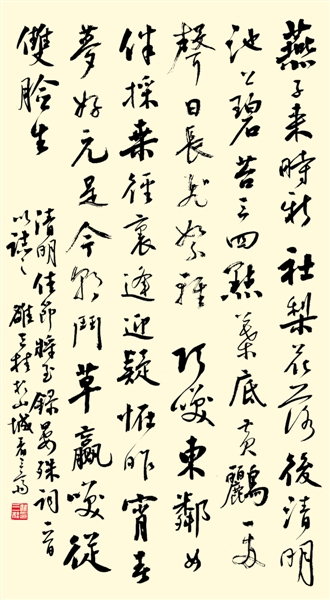 燕子来時新社梨花落後清明
池上碧苔三四點葉底黄鸝一兩
聲日長飛絮輕 巧咲東鄰女
伴採桒徑裏逢迎疑怪昨宵春
夢好元是今朝鬥草贏咲從
雙臉生
清明佳節將至錄晏殊詞一首
以誌之 雒三桂於山城